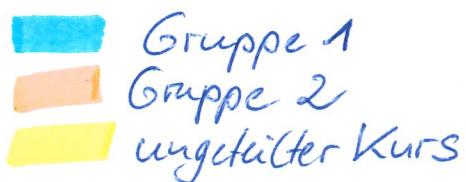 Gruppe 1
Gruppe 2
ungeteilter Kurs